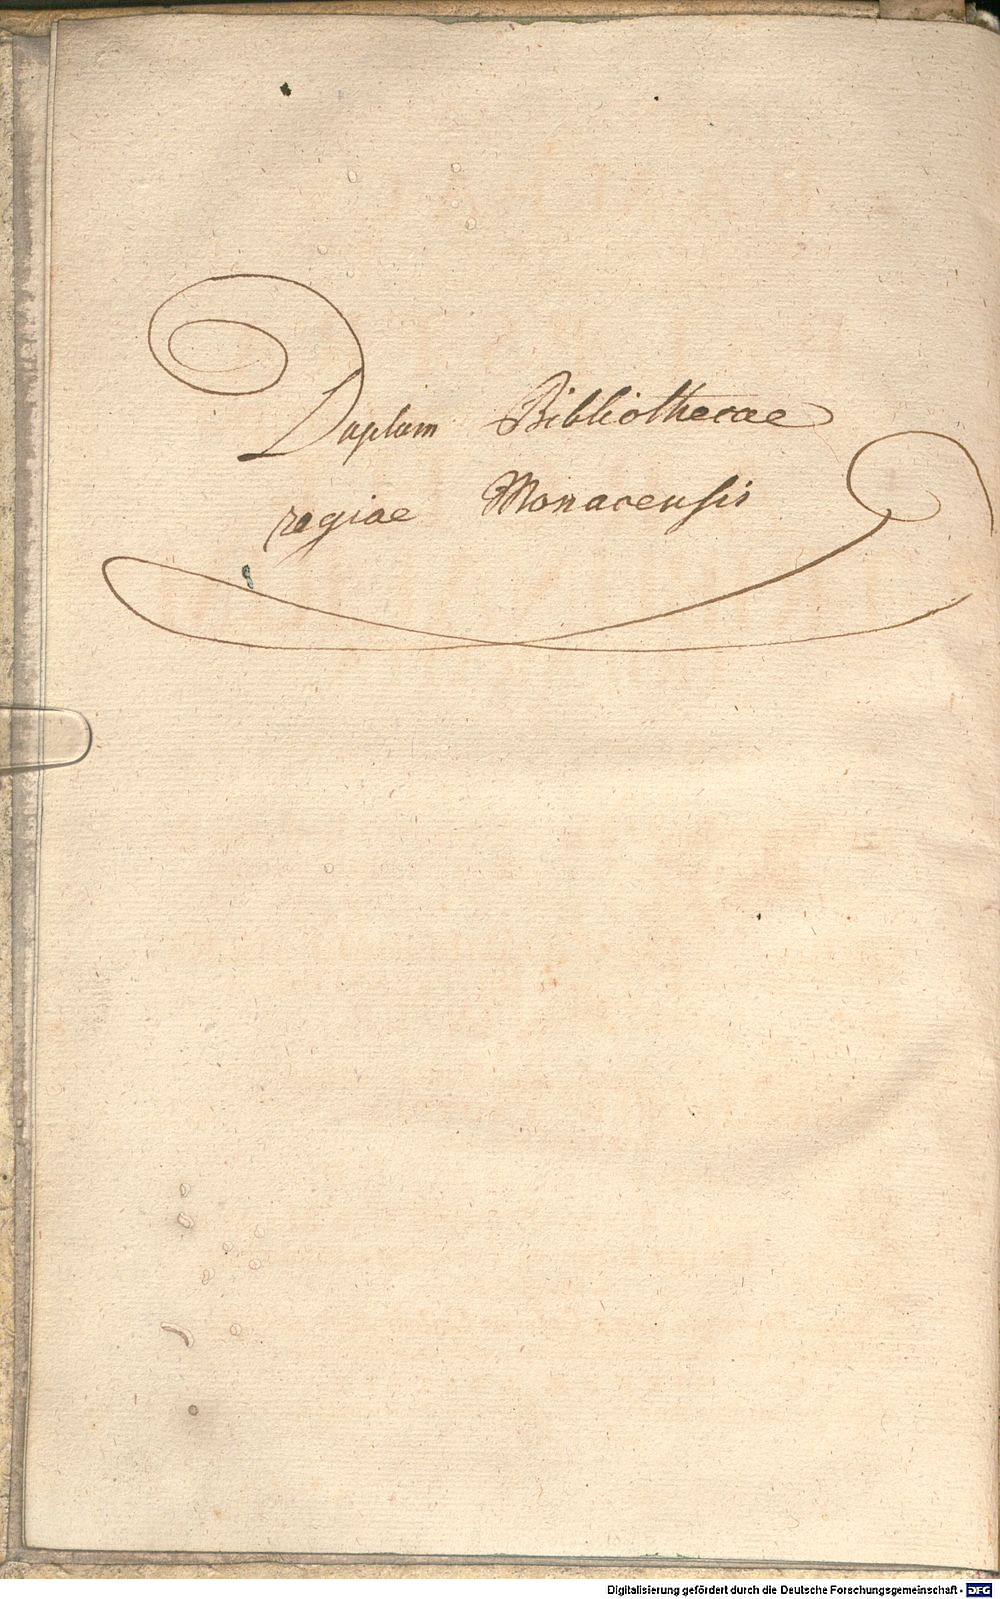 Duplum Bibliothecae
regiae Monacensis
Digitalisierung gefördert durch die Deutsche Forschungsgemeinschaft - DFG